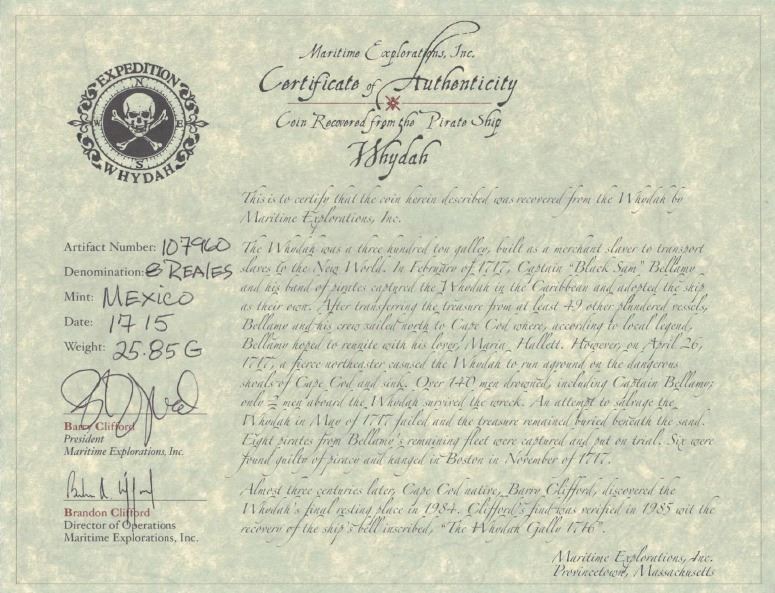 Maritime Explorations, Inc.
Certificate of Authenticity
Coin Recovered from the Pirate Ship
Whydah
EXPEDITION
N
W E
S
WHYDAH
This is to certify that the coin herein described was recovered from the Whydah by
Maritime Explorations, Inc.
Artifact Number: 107960
Denomination: 8 REALES
Mint: MEXICO
Date: 1715
Weight: 25.85 G
Barry Clifford
President
Maritime Explorations, Inc.
Brandon Clifford
Director of Operations
Maritime Explorations, Inc.
The Whydah was a three hundred ton galley, built as a merchant slaver to transport
slaves to the New World. In February of 1717, Captain "Black Sam" Bellamy
and his band of pirates captured the Whydah in the Caribbean and adopted the ship
as their own. After transferring the treasure from at least 49 other plundered vessels,
Bellamy and his crew sailed north to Cape Cod where, according to local legend,
Bellamy hoped to reunite with his lover, Maria Hallett. However, on April 26,
1717, a fierce northeaster casused the Whydah to run aground on the dangerous
shoals of Cape Cod and sink. Over 140 men drowned, including Captain Bellamy;
only 2 men aboard the Whydah survived the wreck. An attempt to salvage the
Whydah in May of 1717 failed and the treasure remained buried beneath the sand.
Eight pirates from Bellamy's remaining fleet were captured and put on trial. Six were
found guilty of piracy and hanged in Boston in November of 1717.
Almost three centuries later, Cape Cod native, Barry Clifford, discovered the
Whydah's final resting place in 1984. Clifford's find was verified in 1985 wit the
recovery of the ship's bell inscribed, "The Whydah Gally 1716".
Maritime Explorations, Inc.
Provincetown, Massachusetts